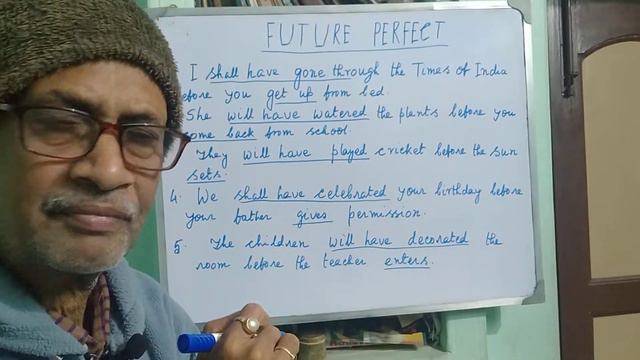 FUTURE PERFECT
I shall have gone through the Times of India
before you get up from bed.
She will have watered the plants before you
come back from school.
They will have played cricket before the sun
sets.
4. We shall have celebrated your birthday before
your father gives permission.
5. The children will have decorated the
room before the teacher enters.